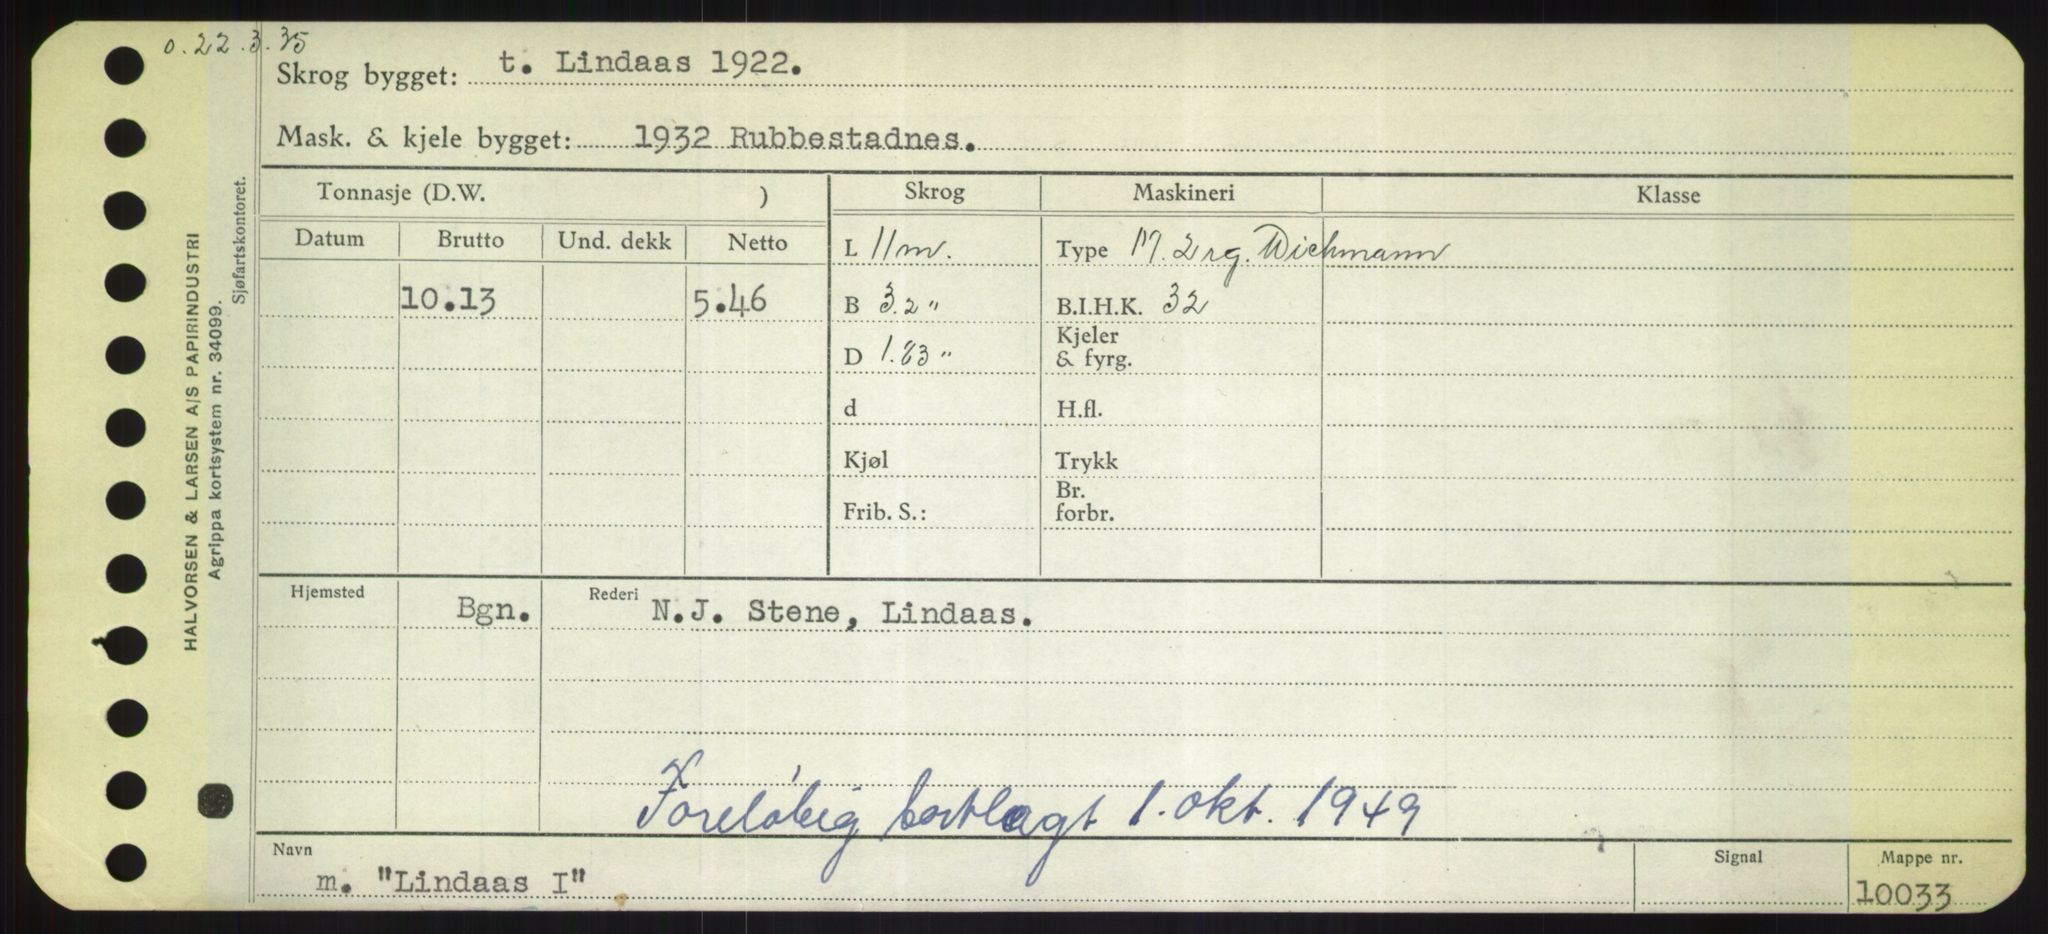 o. 22.3.35
Skrog bygget: t. Lindaas 1922.
Mask. & kjele bygget: 1932 Rubbestadnes.
Tonnasje (D.W. )
Skrog
Maskineri
Klasse
Datum Brutto Und. dekk Netto
L 11 m.
Type M. 2 rg. Wichmann
10.13 5.46
B 3.2 "
B.I.H.K. 32
D 1.83 "
Kjeler
& fyrg.
d
H.fl.
Kjøl
Trykk
Frib. S.:
Br.
forbr.
Hjemsted Bgn. Rederi N.J. Stene, Lindaas.
Foreløbig bortlagt 1. okt. 1949
Navn
m. "Lindaas I"
Signal
Mappe nr.
10033
HALVORSEN & LARSEN A/S PAPIRINDUSTRI
Agrippa kortsystem nr. 34099.
Sjøfartskontoret.